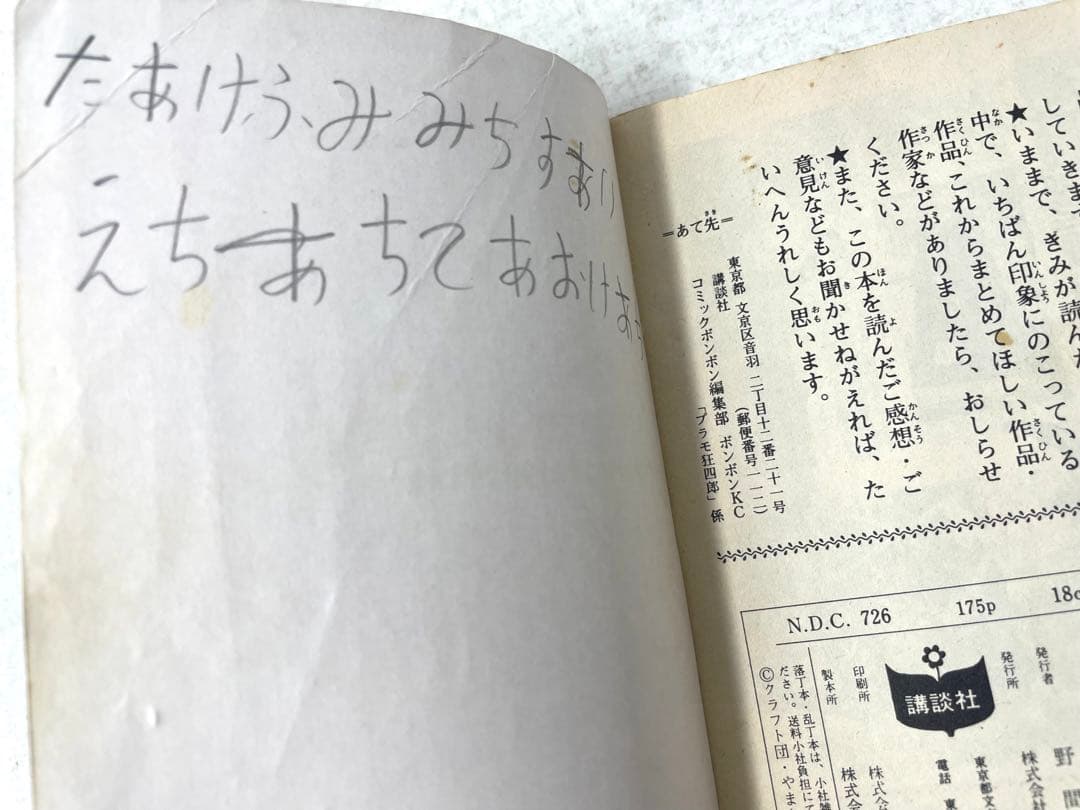 たあけふみ みちすあり
えちあちてあおけあ
していきま
★いままで、きみが読んだ
中で、いちばん印象にのこっている
作品、これからまとめてほしい作品・
作家などがありましたら、おしらせ
ください。
★また、この本を読んだご感想・ご
意見などもお聞かせねがえれば、た
いへんうれしく思います。
=あて先=
東京都 文京区音羽 二丁目十二番二十一号
(郵便番号一一二)
講談社
コミックボンボン編集部 ボンボンKC
「プラモ狂四郎」係
N.D.C. 726 175p 18c
発行者 野間
発行所 株式会
東京都文
電話 東
講談社
印刷所 株式会
製本所 株式会
落丁本・乱丁本は、小社雑
ださい。送料小社負担にて
©クラフト団・やま